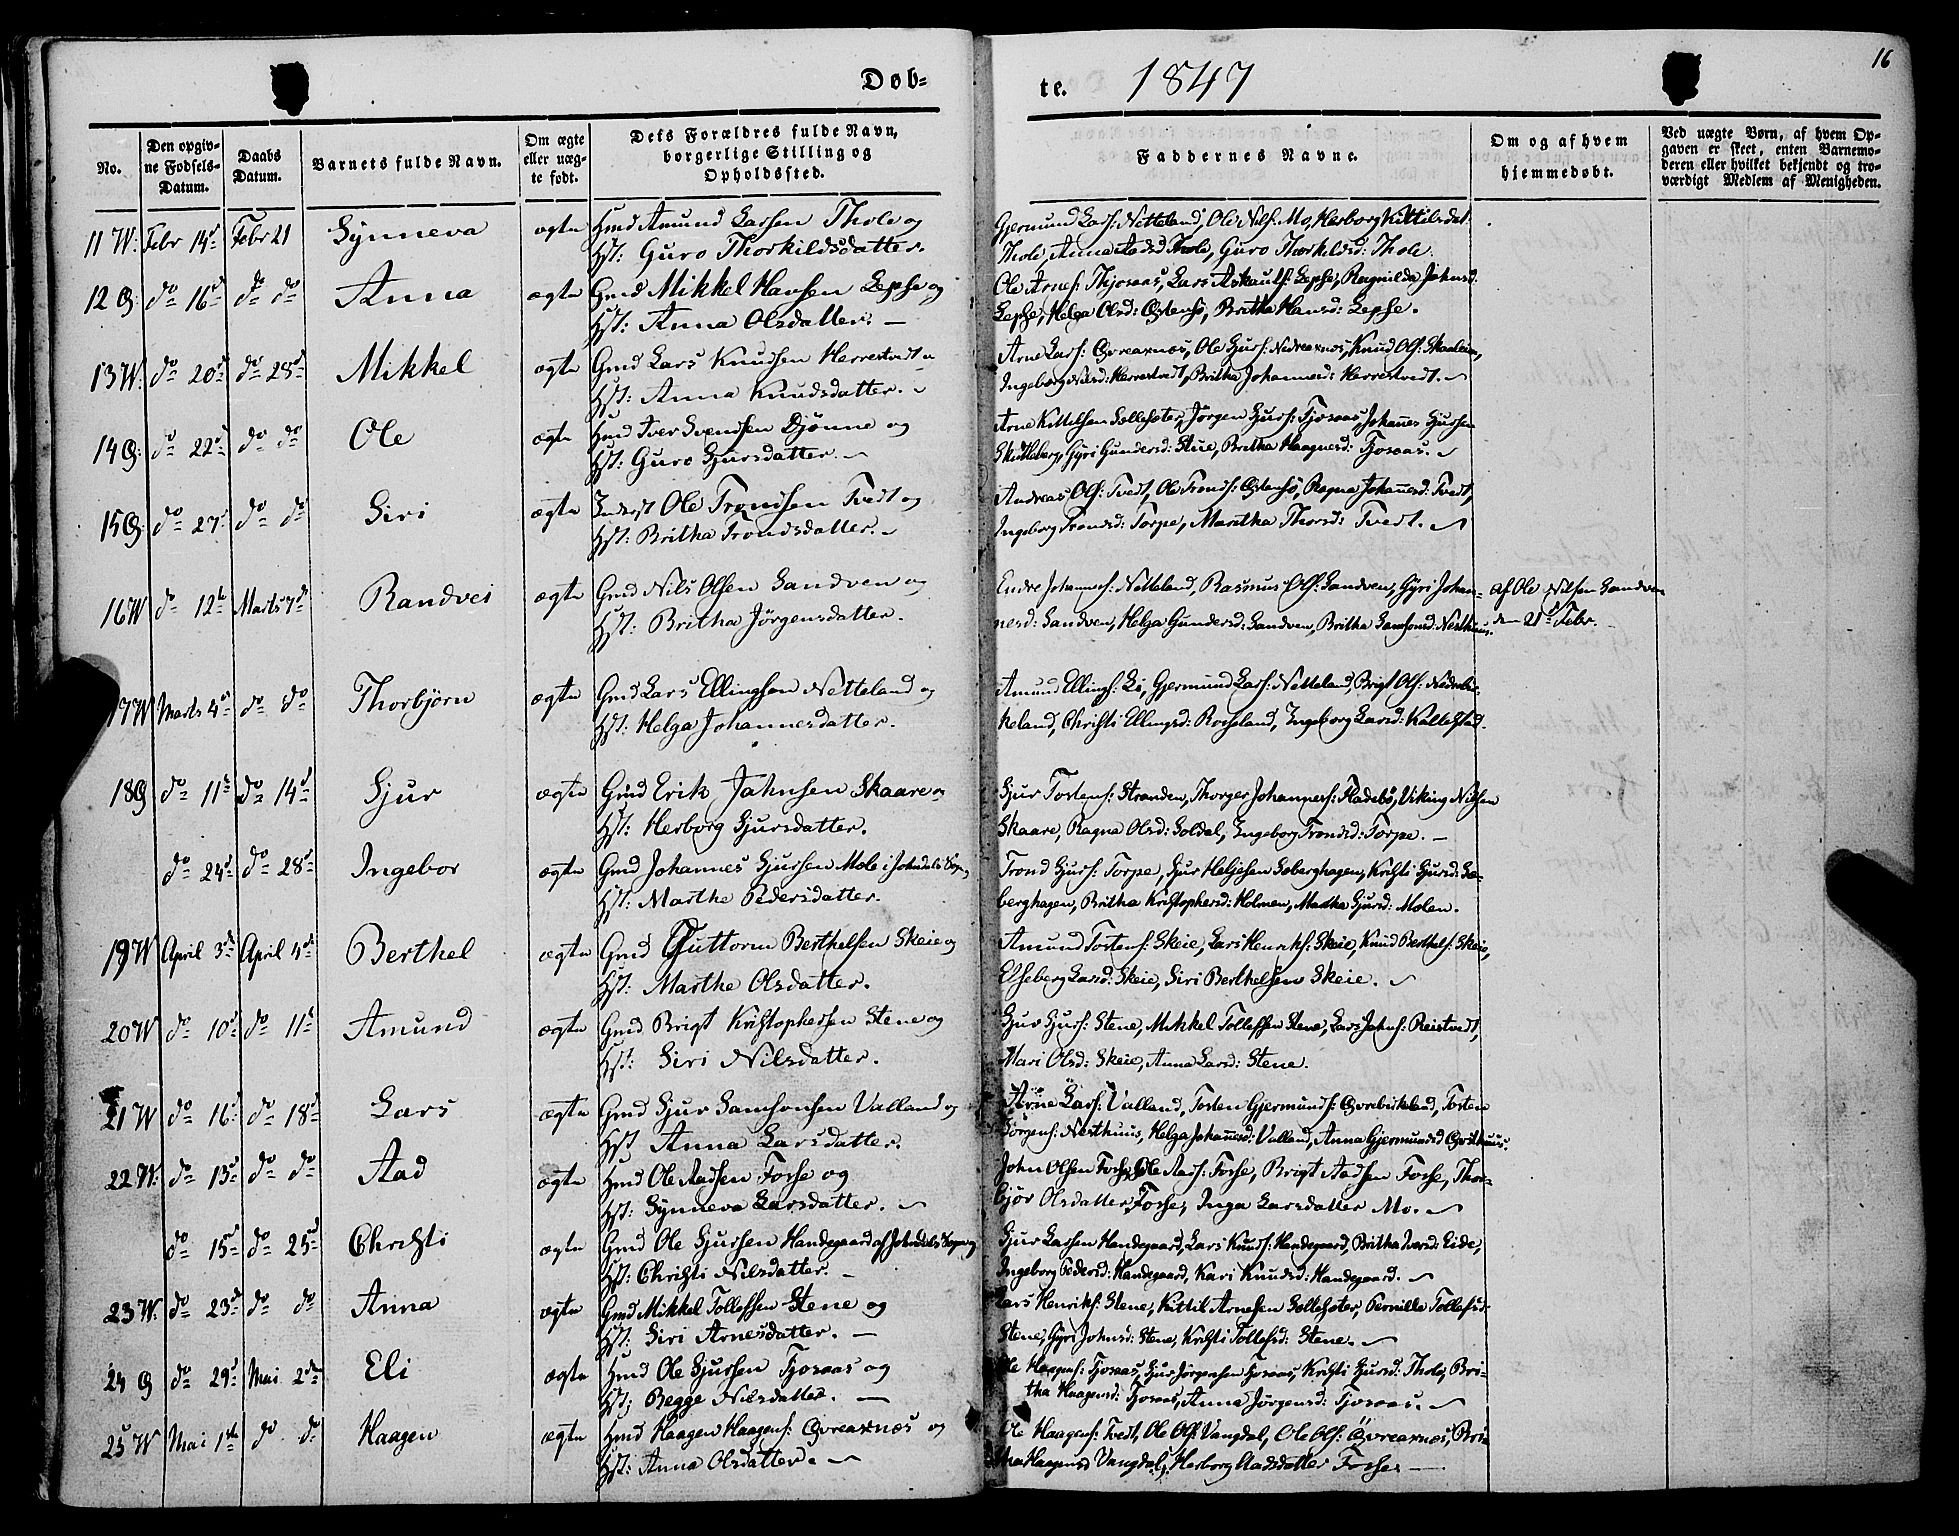 16
Døb-
te. 1847
No.
Den opgiv-
ne Fødsels-
Datum.
Daabs
Datum.
Barnets fulde Navn.
Om ægte
eller uæg-
te født.
Dets Forældres fulde Navn,
borgerlige Stilling og
Opholdssted.
Faddernes Navne.
Om og af hvem
hjemmedøbt.
Ved uægte Børn, af hvem Op-
gaven er skeet, enten Barnemo-
deren eller hvilket bekjendt og tro-
værdigt Medlem af Menigheden.
11 W: Febr 14d Febr 21 Synneva ægte Hmd Amund Larsen Thole og
Hst: Guro Thorkildsdatter.
Gjermund Lars: Netteland, Ole Nils: Mo, Herborg Kittilsdat:
Thole, Anna Aadsd Thole, Guro Thorkildsd: Thole.
12 G: do 16d do do Anna ægte Gmd Mikkel Hansen Lepse og
Hst: Anna Olsdatter. —
Ole Arnes: Thjosaas, Lars Askauts: Lepse, Ragnilda Johnsd:
Lepse, Helga Olsd: Østensø, Britha Hansd: Lepse.
13 W: do 20d do 28d Mikkel ægte Gmd Lars Knudsen Herrestvedt u
Hst: Anna Knudsdatter.
Arne Lars: Øvreaxnæs, Ole Sjurs: Nedreaxnæs, Knud Ols: Skaaleim,
Ingeborg Nilsd: Herrestvedt, Britha Johannesd: Herrestvedt.
14 G: do 22d do do Ole ægte Hmd Iver Svendsen Djønne og
Hst: Guro Sjursdatter.
Arne Kittelsen Solleseter, Jørgen Sjurs: Tjosaas, Johannes Sjursen
Skutleberg, Gyri Gundersd: Stue, Britha Haagnesd: Tjosaas.
15 G: do 27 do do Siri ægte Inderst Ole Trondsen Tvedt og
Hst: Britha Trondsdatter.
Andreas Ols: Tvedt, Ole Tronds: Østensø, Ragna Johannesd: Tvedt,
Ingeborg Tronsd: Torpe, Maritha Thorsd: Tvedt.
16 W do 12te Marts 7de Randvei ægte Gmd Nils Olsen Sandven og
Hst: Britha Jørgensdatter.
Endre Johannes: Netteland, Rasmus Ols: Sandven, Gyri Johan-
nesd: Sandven, Helga Gundersd: Sandven, Britha Samsonsd: Nesthuus.
af Ole Nilsen Sandven
den 21d Febr.
17 W Marts 4de do do Thorbjørn ægte Gmd Lars Ellingsen Netteland og
Hst: Helga Johannesdatter.
Amund Ellings: Li, Gjermund Lars: Netteland, Brigt Ols: Nedrebir-
keland, Christi Ellingsd: Rosseland, Ingeborg Larsd: Kallestad.
18 G do 11te do 14d Sjur ægte Gmd Erik Johnsen Skaare og
Hst: Herborg Sjursdatter.
Sjur Tostens: Stranden, Thorger Johannes: Fladebø, Viking Nilsen
Skaare, Ragna Olsd: Soldal, Ingeborg Tronsd: Torpe. —
do 24d do 28d Ingebor ægte Gmd Johannes Sjursen Mole i Jondals Sogn
Hst: Marthe Pedersdatter.
Trond Sjurs: Torpe, Sjur Heljesen Soberghagen, Kristi Sjursd: So-
berghagen, Britha Kristophersd: Holmen, Martha Sjursd: Molen.
19 W April 3de April 4de Berthel ægte Gmd Guttorm Berthelsen Skeie og
Hst: Marthe Olsdatter.
Amund Tostens: Skeie, Lars Henriks: Skeie, Knud Berthels: Skeie,
Elseberg Larsd: Skeie, Siri Berthelsen Skeie.
20 W do 10d do 11te Amund ægte Gmd Brigt Kristophersen Stene og
Hst: Siri Nilsdatter.
Sjur Sjurs: Stene, Mikkel Tollefsen Stene, Lars Johns: Reistvedt,
Mari Olsd: Skeie, Anna Larsd: Stene.
21 W do 16d do 18d Lars ægte Gmd Sjur Samsonsen Valland og
Hst Anna Larsdatter.
Arne Lars: Valland, Tosten Gjermunds: Øvrebirkeland, Tosten
Jørgens: Nesthuus, Helga Johannesd: Valland, Anna Gjermundsd Øvsthuus.
22 W. do 13d do do Aad ægte Hmd Ole Aadsen Fosse og
Hst: Synneva Larsdatter.
John Olsen Fosse, Ole Aads: Fosse, Brigt Aadsen Fosse, Thor-
bjør Olsdatter Fosse, Inga Larsdatter Mo.
do 15d do 25d Christi ægte Gmd Ole Sjursen Handegaard af Jondals Sogn og
Hst: Christi Nilsdatter. —
Sjur Larsen Handegaard, Lars Knuds: Handegaard, Britha Iversd: Eide,
Ingeborg Pedersd: Handegaard, Kari Knudsd: Handegaard.
23 W. do 23d do do Anna ægte Gmd Mikkel Tollefsen Stene og
Hst: Siri Arnesdatter. —
Lars Henriks: Stene, Kittil Arnesen Solleseter, Pernille Tollefsd:
Stene, Gyri Johnsd: Stene, Kristi Tollefsd: Stene.
24 G do 29d Mai 2den Eli ægte Hmd Ole Sjursen Tjosaas og
Hst: Begge Nilsdatter. —
Ole Haagens: Tjosaas, Sjur Jørgensen Tjosaas, Kristi Sjursd: Thole, Bri-
tha Haagensd: Tjosaas, Anna Jørgensd: Tjosaas.
25 W Mai 1ste do do Haagen ægte Hmd Haagen Haagens: Øvreaxnæs og
Hst: Anna Olsdatter.
Ole Haagens: Tvedt, Ole Ols: Vangdal, Ole Ols: Øvreaxnæs, Bri-
tha Haagensd Vangdal, Herborg Aadsdatter Fosse —